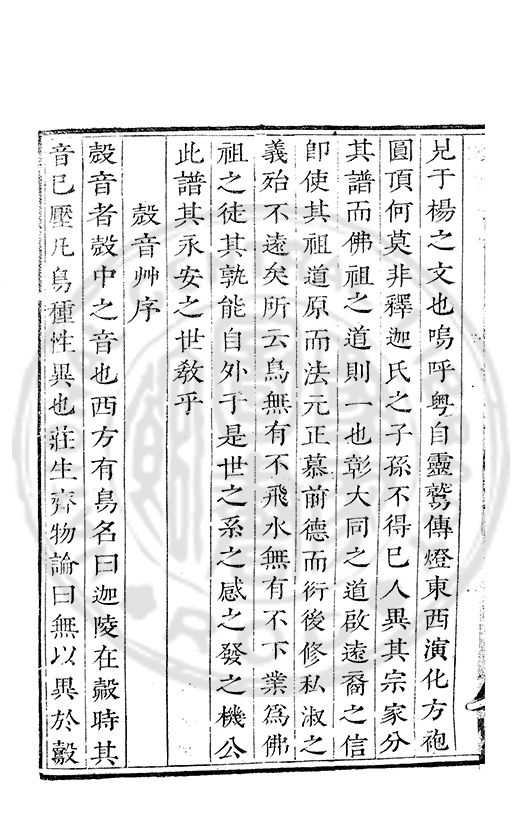 見于楊之文也嗚呼粤自靈鷲傳燈東西演化方袍
圓頂何莫非釋迦氏之子孫不得已人異其宗家分
其譜而佛祖之道則一也彰大同之道啟遠裔之信
卽使其祖道原而法元正慕前德而衍後修私淑之
義殆不遠矣所云鳥無有不飛水無有不下業爲佛
祖之徒其孰能自外于是世之系之感之發之機公
此譜其永安之世敎乎
鷇音艸序
鷇音者鷇中之音也西方有鳥名曰迦陵在鷇時其
音已壓凡鳥種性異也莊生齊物論曰無以異於鷇